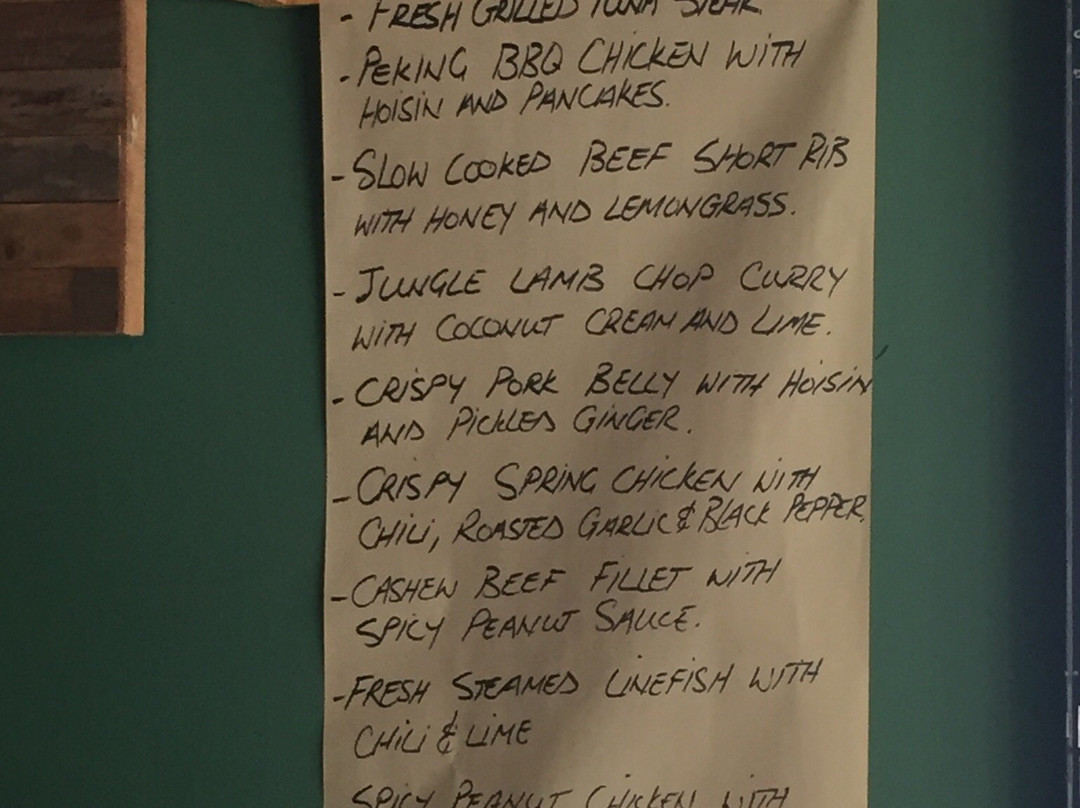 - FRESH GRILLED TUNA STEAK
- PEKING BBQ CHICKEN WITH
HOISIN AND PANCAKES.
- SLOW COOKED BEEF SHORT RIB
WITH HONEY AND LEMONGRASS.
- JUNGLE LAMB CHOP CURRY
WITH COCONUT CREAM AND LIME.
- CRISPY PORK BELLY WITH HOISIN
AND PICKLED GINGER.
- CRISPY SPRING CHICKEN WITH
CHILI, ROASTED GARLIC & BLACK PEPPER.
- CASHEW BEEF FILLET WITH
SPICY PEANUT SAUCE.
- FRESH STEAMED LINEFISH WITH
CHILI & LIME
SPICY PEANUT CHICKEN WITH